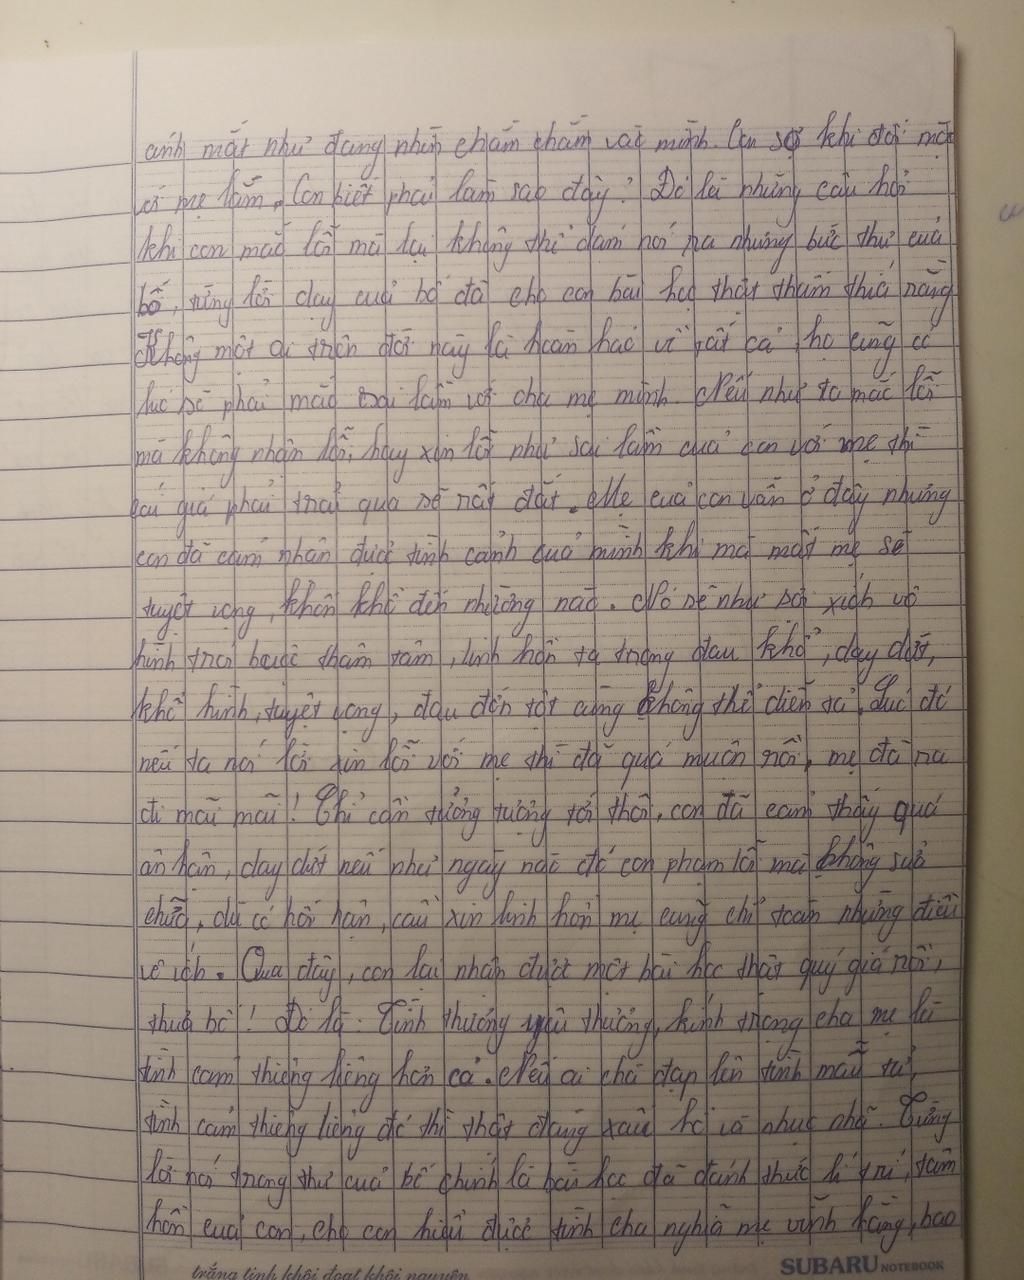 ánh mắt như đang nhìn chằm chằm vào mình. Con sợ khi đối mặt
với mẹ lắm. Con biết phải làm sao đây? Đó là những câu hỏi
khi con mắc lỗi mà lại không thể dám nói ra nhưng bức thư của
bố, từng lời dạy của bố đã cho con bài học thật thấm thía rằng
Không một ai trên đời này là hoàn hảo vì tất cả họ cũng có
lúc sẽ phải mắc sai lầm với cha mẹ mình. Nếu như ta mắc lỗi
mà không nhận lỗi, hay xin lỗi như sai lầm của con với mẹ thì
cái giá phải trả qua sẽ rất đắt. Mẹ của con vẫn ở đây nhưng
con đã cảm nhận được tình cảnh của mình khi mà mất mẹ sẽ
tuyệt vọng, khốn khổ đến nhường nào. Nó sẽ như sợi xích vô
hình trói buộc thâm tâm, linh hồn ta trong đau khổ, day dứt,
khổ hình, tuyệt vọng, đau đớn tột cùng không thể diễn tả. Lúc đó
nếu ta nói lời xin lỗi với mẹ thì đã quá muộn rồi, mẹ đã ra
đi mãi mãi! Chỉ cần tưởng tượng tới thôi, con đã cảm thấy quá
ân hận, day dứt nếu như ngày nào đó con phạm lỗi mà không sửa
chữa, dù có hối hận, cầu xin linh hồn mẹ cũng chỉ toàn những điều
vô ích. Qua đây, con lại nhận được một bài học thật quý giá rồi,
thưa bố! Đó là: Tình thương yêu thương, kính trọng cha mẹ là
tình cảm thiêng liêng hơn cả. Nếu ai chà đạp lên tình mẫu tử,
tình cảm thiêng liêng đó thì thật đáng xấu hổ và nhục nhã. Từng
lời nói trong thư của bố chính là bài học đã đánh thức lí trí, tâm
hồn của con, cho con hiểu được tình cha nghĩa mẹ vĩnh hằng, bao
trắng tinh khôi đoạt khôi nguyên
SUBARU NOTEBOOK